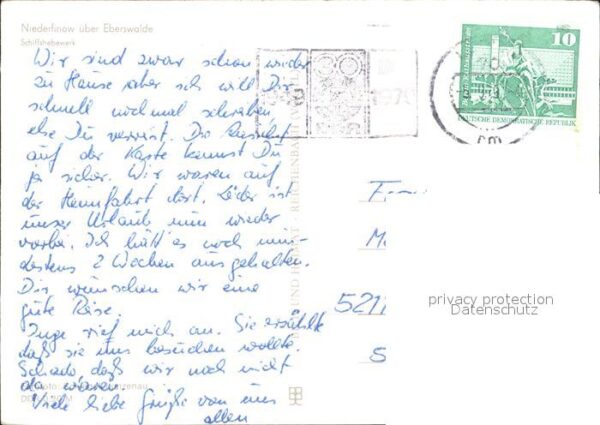 Niederfinow über Eberswalde
Schiffshebewerk
Wir sind zwar schon wieder
zu Hause aber ich will Dir
schnell noch mal schreiben,
ehe Du verreist. Die Ansicht
auf der Karte kennst Du
ja sicher. Wir waren auf
der Heimfahrt dort. Leider ist
unser Urlaub nun wieder
vorbei. Ich hätt es noch min-
destens 2 Wochen ausgehalten.
Dir wünschen wir eine
gute Reise.
Inge rief mich an. Sie erzählte
daß sie uns besuchen wollte.
Schade, daß wir noch nicht
da waren.
Viele liebe Grüße von uns
allen
10
DEUTSCHE DEMOKRATISCHE REPUBLIK
1979
BILD UND HEIMAT REICHENBACH
5211
privacy protection
Datenschutz